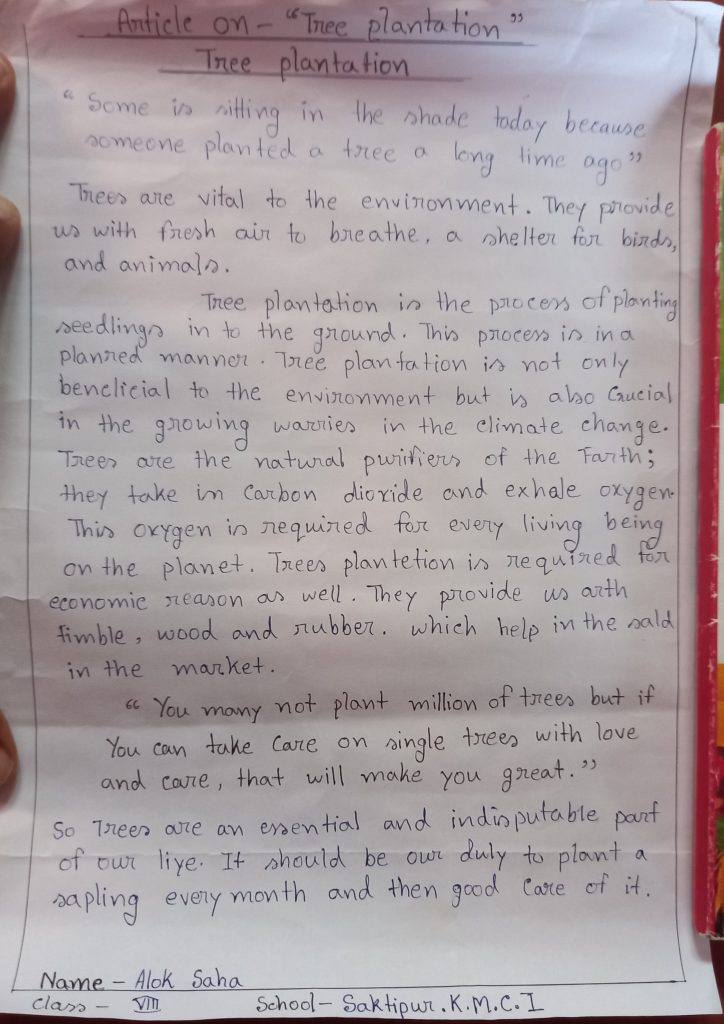 Article on - "Tree plantation"
Tree plantation
"Some is sitting in the shade today because
someone planted a tree a long time ago"
Trees are vital to the environment. They provide
us with fresh air to breathe, a shelter for birds,
and animals.
Tree plantation is the process of planting
seedlings in to the ground. This process is in a
planned manner. Tree plantation is not only
benclicial to the environment but is also Crucial
in the growing warries in the climate change.
Trees are the natural purifiers of the Farth;
they take in Carbon dioxide and exhale oxygen.
This oxygen is required for every living being
on the planet. Trees plantetion is required for
economic reason as well. They provide us arth
fimble, wood and rubber. which help in the sald
in the market.
"You many not plant million of trees but if
You can take Care on single trees with love
and care, that will make you great."
So Trees are an essential and indisputable part
of our liye. It should be our duly to plant a
sapling every month and then good Care of it.
Name - Alok Saha
Class - VIII School - Saktipur.K.M.C.I